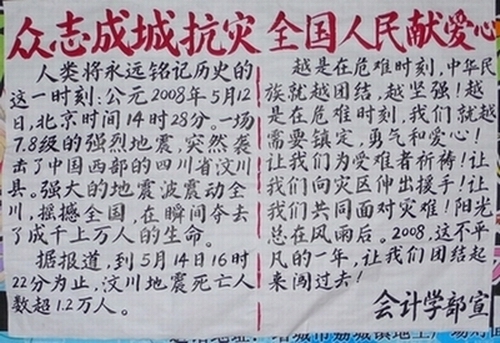 众志成城抗灾 全国人民献爱心
人类将永远铭记历史的
这一时刻:公元2008年5月12
日,北京时间14时28分。一场
7.8级的强烈地震,突然袭
击了中国西部的四川省汶川
县。强大的地震波震动全
川,摇撼全国,在瞬间夺去
了成千上万人的生命。
据报道,到5月14日16时
22分为止,汶川地震死亡人
数超1.2万人。
越是在危难时刻,中华民
族就越团结,越坚强!越
是在危难时刻,我们就越
需要镇定,勇气和爱心!
让我们为受难者祈祷!让
我们向灾区伸出援手!让
我们共同面对灾难!阳光
总在风雨后。2008,这不平
凡的一年,让我们团结起
来闯过去!
会计学部宣